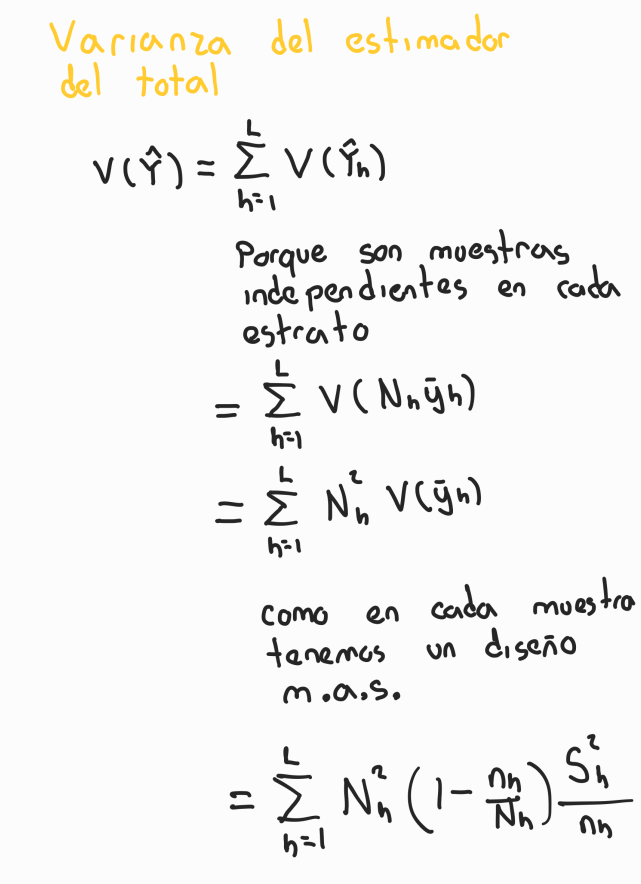 Varianza del estimador
del total
V(Ŷ) = ∑_{h=1}^{L} V(Ŷ_h)
Porque son muestras
independientes en cada
estrato
= ∑_{h=1}^{L} V(N_h ȳ_h)
= ∑_{h=1}^{L} N_h^2 V(ȳ_h)
como en cada muestra
tenemos un diseño
m.a.s.
= ∑_{h=1}^{L} N_h^2 (1 - n_h/N_h) S_h^2/n_h